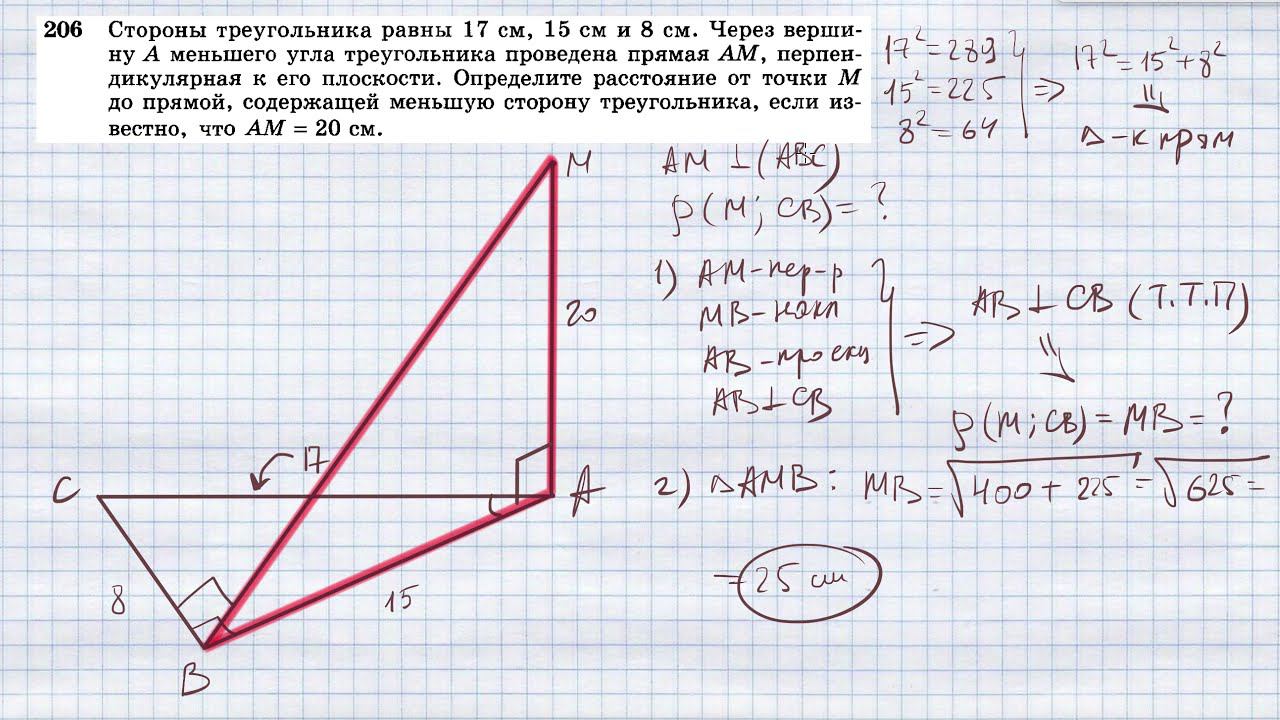 206 Стороны треугольника равны 17 см, 15 см и 8 см. Через верши-
ну A меньшего угла треугольника проведена прямая AM, перпен-
дикулярная к его плоскости. Определите расстояние от точки M
до прямой, содержащей меньшую сторону треугольника, если из-
вестно, что AM = 20 см.
17² = 289
15² = 225
8² = 64
=>
17² = 15² + 8²
Δ-к прям
AM ⊥ (ABC)
ρ(M; CB) = ?
1) AM-пер-р
MB-накл
AB-проекц
AB ⊥ CB
=>
AB ⊥ CB (Т.Т.П)
ρ(M; CB) = MB = ?
2) ΔAMB: MB = √400 + 225 = √625 =
= 25 см
M
20
17
C
A
8
15
B